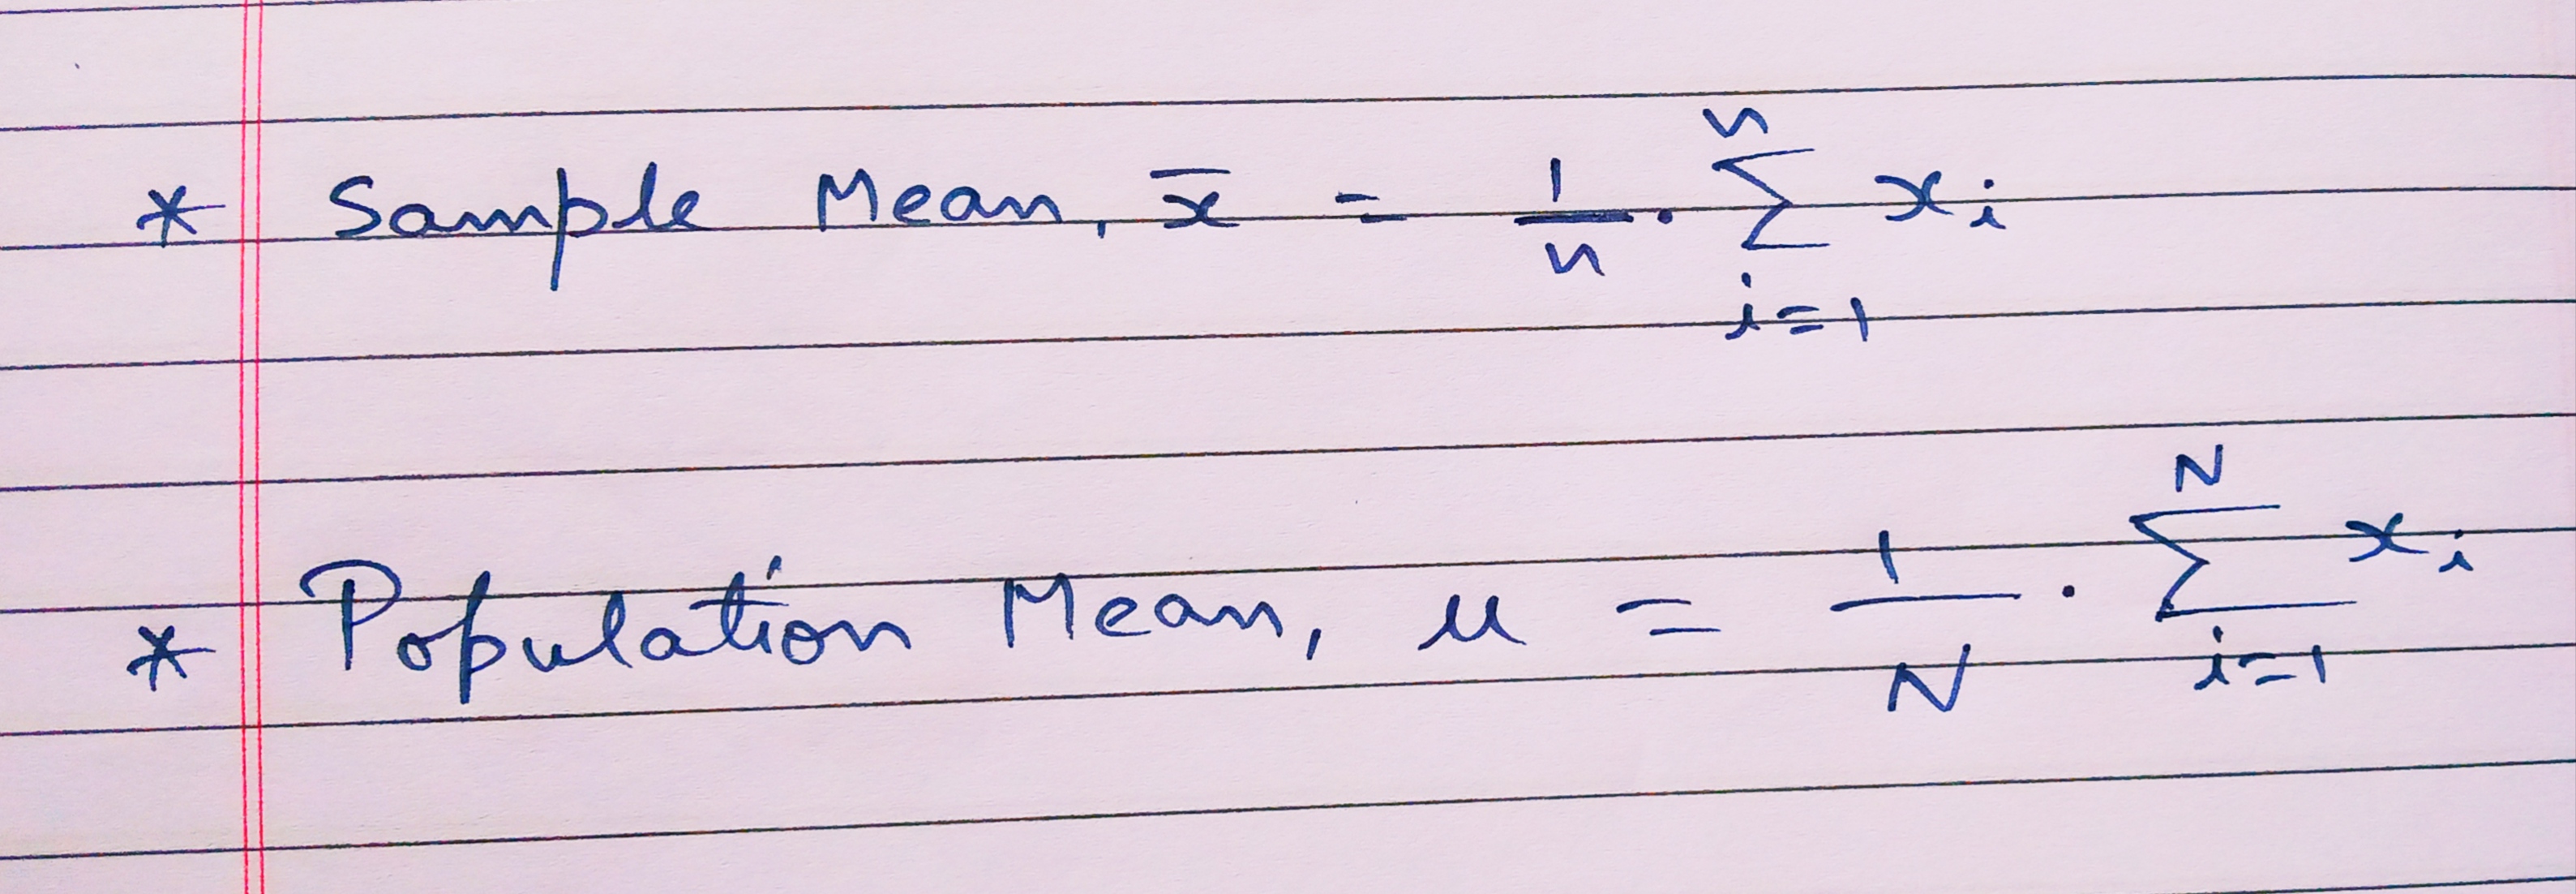 * Sample Mean, x̄ = 1/n · ∑_{i=1}^{n} x_i
* Population Mean, μ = 1/N · ∑_{i=1}^{N} x_i